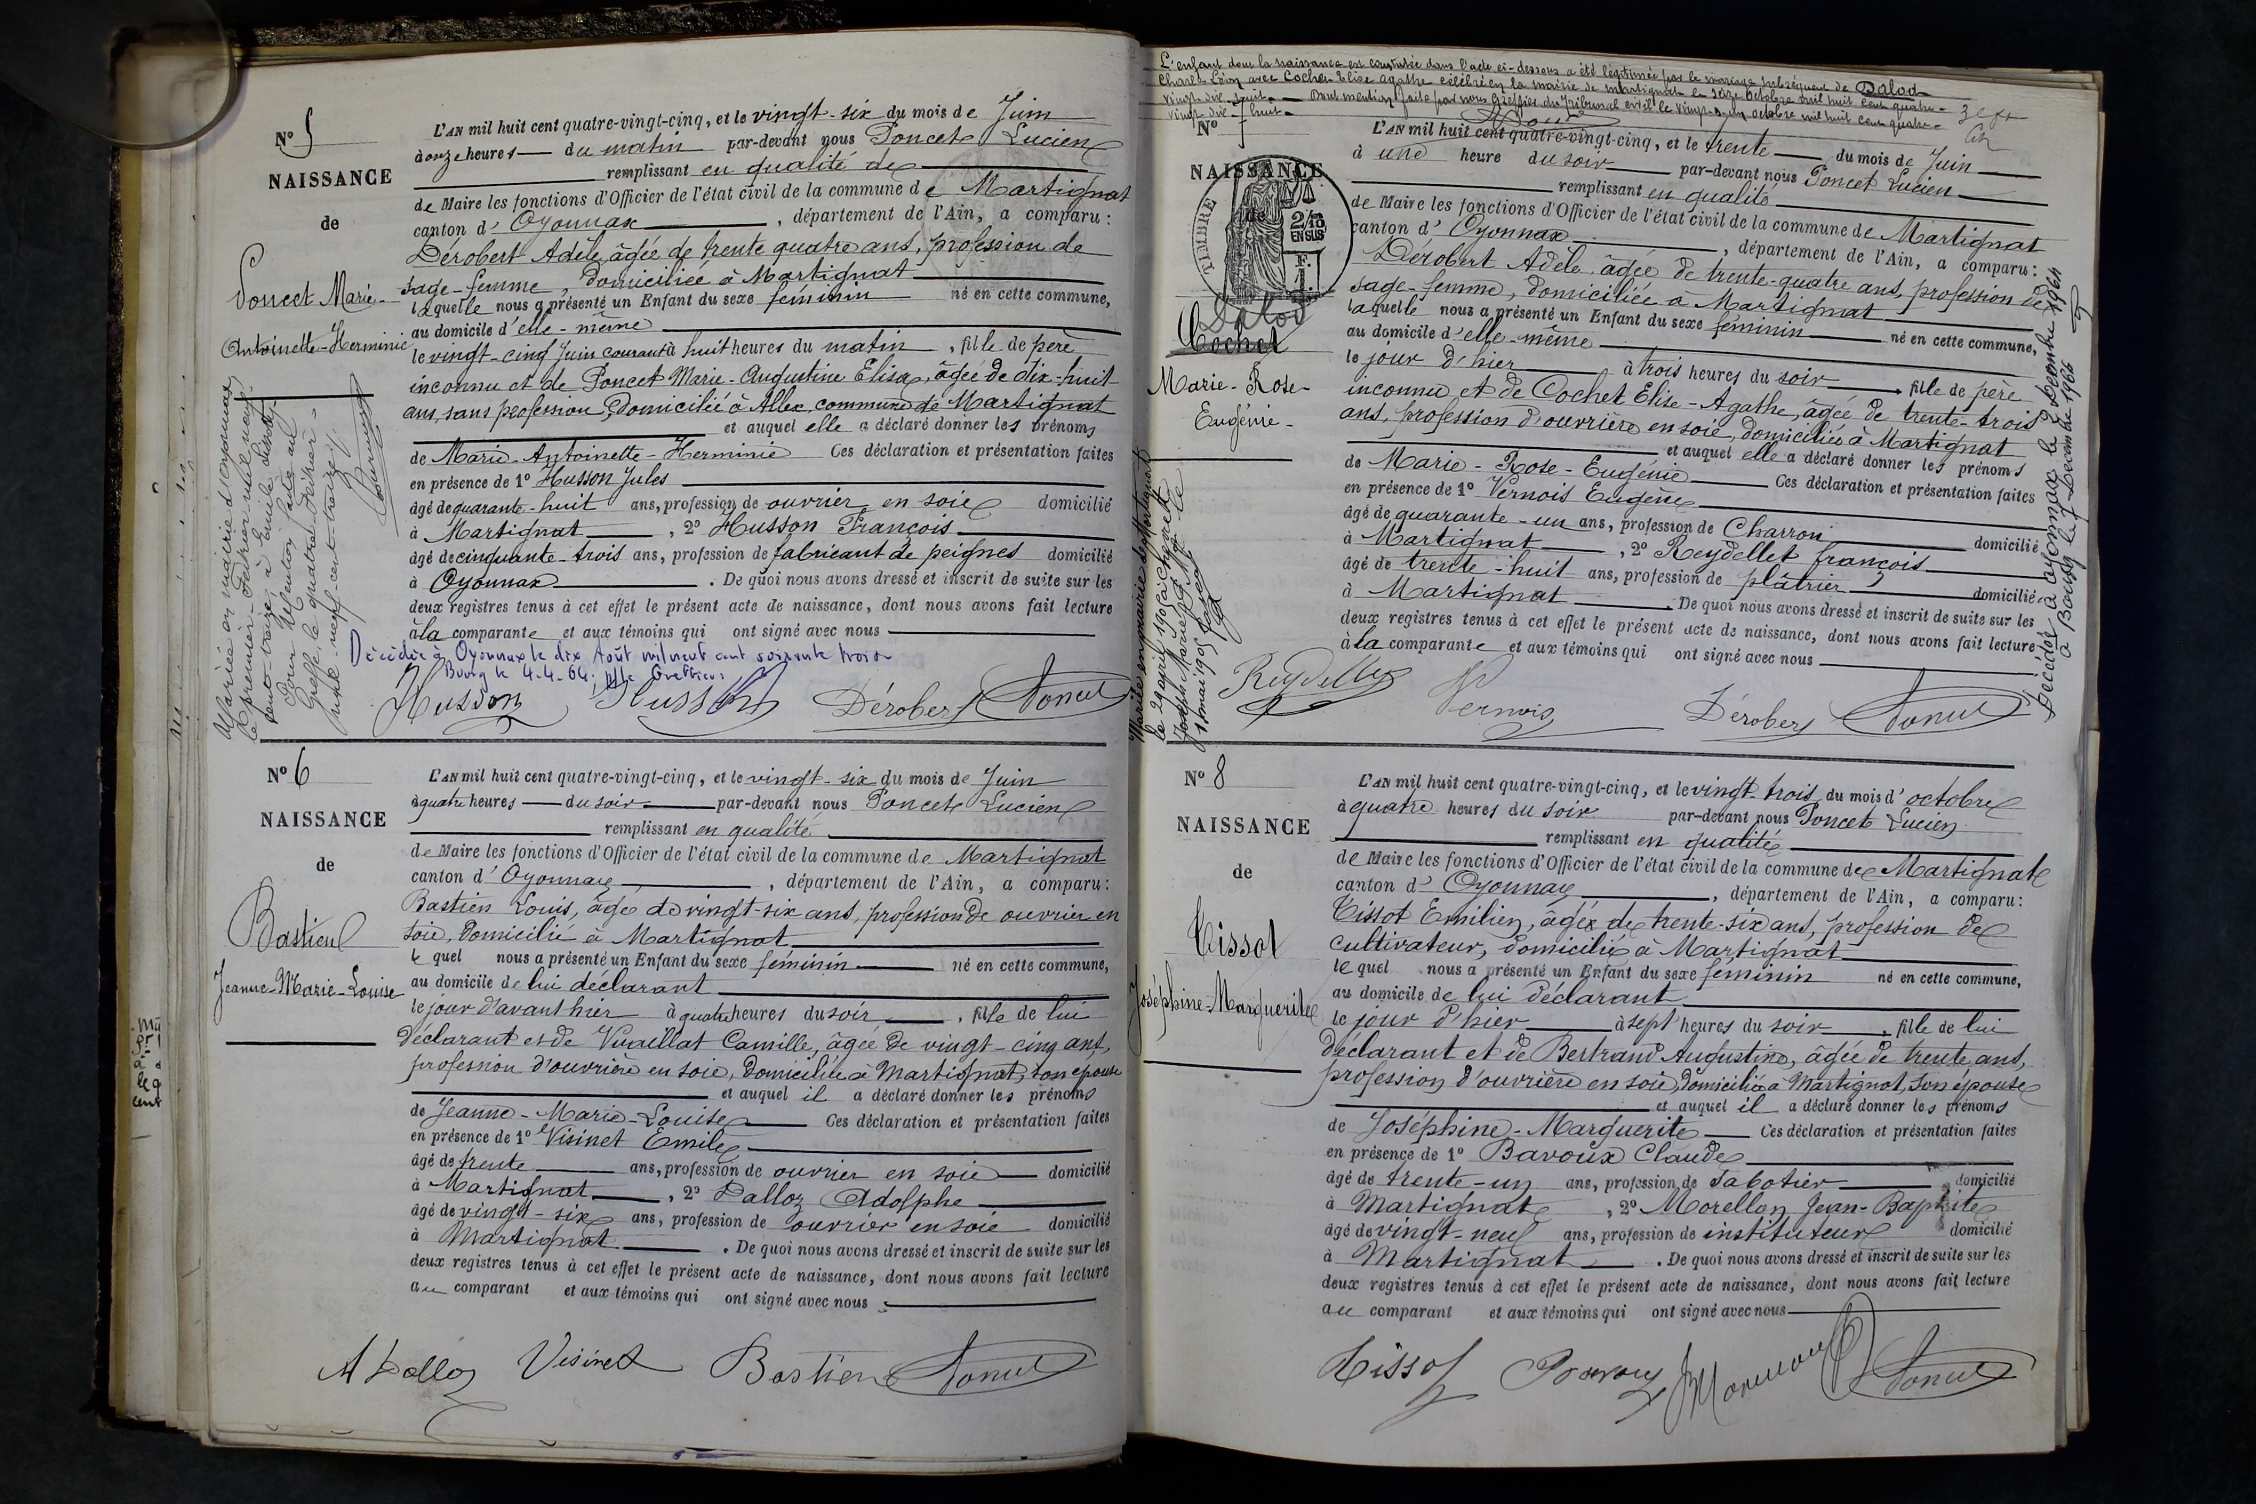 N° 5
NAISSANCE
de
Poncet Marie-
Antoinette-Herminie
Mariée en mairie d'Oyonnax
le premier Février mil neuf
cent-treize, à Emile
Pour Mention faite au
Greffe, le quatre Février
mil-neuf-cent-treize
L'AN mil huit cent quatre-vingt-cinq, et le vingt-six du mois de Juin
à onze heures du matin par-devant nous Poncet Lucien
remplissant en qualité de
de Maire les fonctions d'Officier de l'état civil de la commune de Martignat
canton d' Oyonnax, département de l'Ain, a comparu:
Dérobert Adèle, âgée de trente quatre ans, profession de
sage-femme, domiciliée à Martignat
laquelle nous a présenté un Enfant du sexe féminin né en cette commune,
au domicile d'elle-même
le vingt-cinq Juin courant à huit heures du matin, fille de père
inconnu et de Poncet Marie-Augustine Elisa, âgée de dix-huit
ans, sans profession, domiciliée à Allex, commune de Martignat
et auquel elle a déclaré donner les prénoms
de Marie-Antoinette-Herminie Ces déclaration et présentation faites
en présence de 1° Husson Jules
âgé de quarante-huit ans, profession de ouvrier en soie domicilié
à Martignat, 2° Husson François
âgé de cinquante-trois ans, profession de fabricant de peignes domicilié
à Oyonnax. De quoi nous avons dressé et inscrit de suite sur les
deux registres tenus à cet effet le présent acte de naissance, dont nous avons fait lecture
à la comparante et aux témoins qui ont signé avec nous
Décédée à Oyonnax le dix Août mil neuf cent soixante trois
Bourg le 4-4-64. Le Greffier:
Husson Husson Dérobert Poncet
N° 6
NAISSANCE
de
Bastien
Jeanne-Marie-Louise
L'AN mil huit cent quatre-vingt-cinq, et le vingt-six du mois de Juin
à quatre heures du soir par-devant nous Poncet Lucien
remplissant en qualité
de Maire les fonctions d'Officier de l'état civil de la commune de Martignat
canton d' Oyonnax, département de l'Ain, a comparu:
Bastien Louis, âgé de vingt-six ans, profession de ouvrier en
soie, domicilié à Martignat
le quel nous a présenté un Enfant du sexe féminin né en cette commune,
au domicile de lui déclarant
le jour d'avant hier à quatre heures du soir, fille de lui
déclarant et de Vuaillat Camille, âgée de vingt-cinq ans,
profession d'ouvrière en soie, domiciliée à Martignat, son épouse
et auquel il a déclaré donner les prénoms
de Jeanne-Marie-Louise Ces déclaration et présentation faites
en présence de 1° Visinet Emile
âgé de trente ans, profession de ouvrier en soie domicilié
à Martignat, 2° Dalloz Adolphe
âgé de vingt-six ans, profession de ouvrier en soie domicilié
à Martignat. De quoi nous avons dressé et inscrit de suite sur les
deux registres tenus à cet effet le présent acte de naissance, dont nous avons fait lecture
au comparant et aux témoins qui ont signé avec nous
A Dalloz Visinet Bastien Poncet
L'enfant dont la naissance est constatée dans l'acte ci-dessous a été légitimée par le mariage subséquent de Dalod
Charles Léon avec Cochet Elise Agathe célébré en la mairie de Martignat le seize octobre mil huit cent quatre-
vingt-dix-huit. Dont mention faite par nous Greffier du Tribunal civil le vingt-sept octobre mil huit cent quatre-
vingt-dix-huit.
N° 7
NAISSANCE
de
TIMBRE
2/10
EN SUS
F.
1
Dalod
Cochet
Marie-Rose-
Eugénie-
Mariée en mairie de Martignat
le 29 avril 1905 à
Joseph Marie
1 mai 1905
L'AN mil huit cent quatre-vingt-cinq, et le trente du mois de Juin
à une heure du soir par-devant nous Poncet Lucien
remplissant en qualité
de Maire les fonctions d'Officier de l'état civil de la commune de Martignat
canton d' Oyonnax, département de l'Ain, a comparu:
Dérobert Adèle, âgée de trente-quatre ans, profession de
sage-femme, domiciliée à Martignat
laquelle nous a présenté un Enfant du sexe féminin né en cette commune,
au domicile d'elle-même
le jour d'hier à trois heures du soir, fille de père
inconnu et de Cochet Elise-Agathe, âgée de trente-trois
ans, profession d'ouvrière en soie, domiciliée à Martignat
et auquel elle a déclaré donner les prénoms
de Marie-Rose-Eugénie Ces déclaration et présentation faites
en présence de 1° Vernois Eugène
âgé de quarante-un ans, profession de Charron domicilié
à Martignat, 2° Reydellet françois
âgé de trente-huit ans, profession de plâtrier domicilié
à Martignat. De quoi nous avons dressé et inscrit de suite sur les
deux registres tenus à cet effet le présent acte de naissance, dont nous avons fait lecture
à la comparante et aux témoins qui ont signé avec nous
Reydellet Vernois Dérobert Poncet
Décédée à Oyonnax le 2 décembre 1964
à Bourg le 7 décembre 1964
N° 8
NAISSANCE
de
Tissot
Joséphine-Marguerite
L'AN mil huit cent quatre-vingt-cinq, et le vingt-trois du mois d'octobre
à quatre heures du soir par-devant nous Poncet Lucien
remplissant en qualité
de Maire les fonctions d'Officier de l'état civil de la commune de Martignat
canton d' Oyonnax, département de l'Ain, a comparu:
Tissot Emilien, âgé de trente-six ans, profession de
cultivateur, domicilié à Martignat
le quel nous a présenté un Enfant du sexe féminin né en cette commune,
au domicile de lui déclarant
le jour d'hier à sept heures du soir, fille de lui
déclarant et de Bertrand Augustine, âgée de trente ans,
profession d'ouvrière en soie, domiciliée à Martignat, son épouse
et auquel il a déclaré donner les prénoms
de Joséphine-Marguerite Ces déclaration et présentation faites
en présence de 1° Bavoux Claude
âgé de trente-un ans, profession de sabotier domicilié
à Martignat, 2° Morellon Jean-Baptiste
âgé de vingt-neuf ans, profession de instituteur domicilié
à Martignat. De quoi nous avons dressé et inscrit de suite sur les
deux registres tenus à cet effet le présent acte de naissance, dont nous avons fait lecture
au comparant et aux témoins qui ont signé avec nous
Tissot Bavoux Morellon Poncet